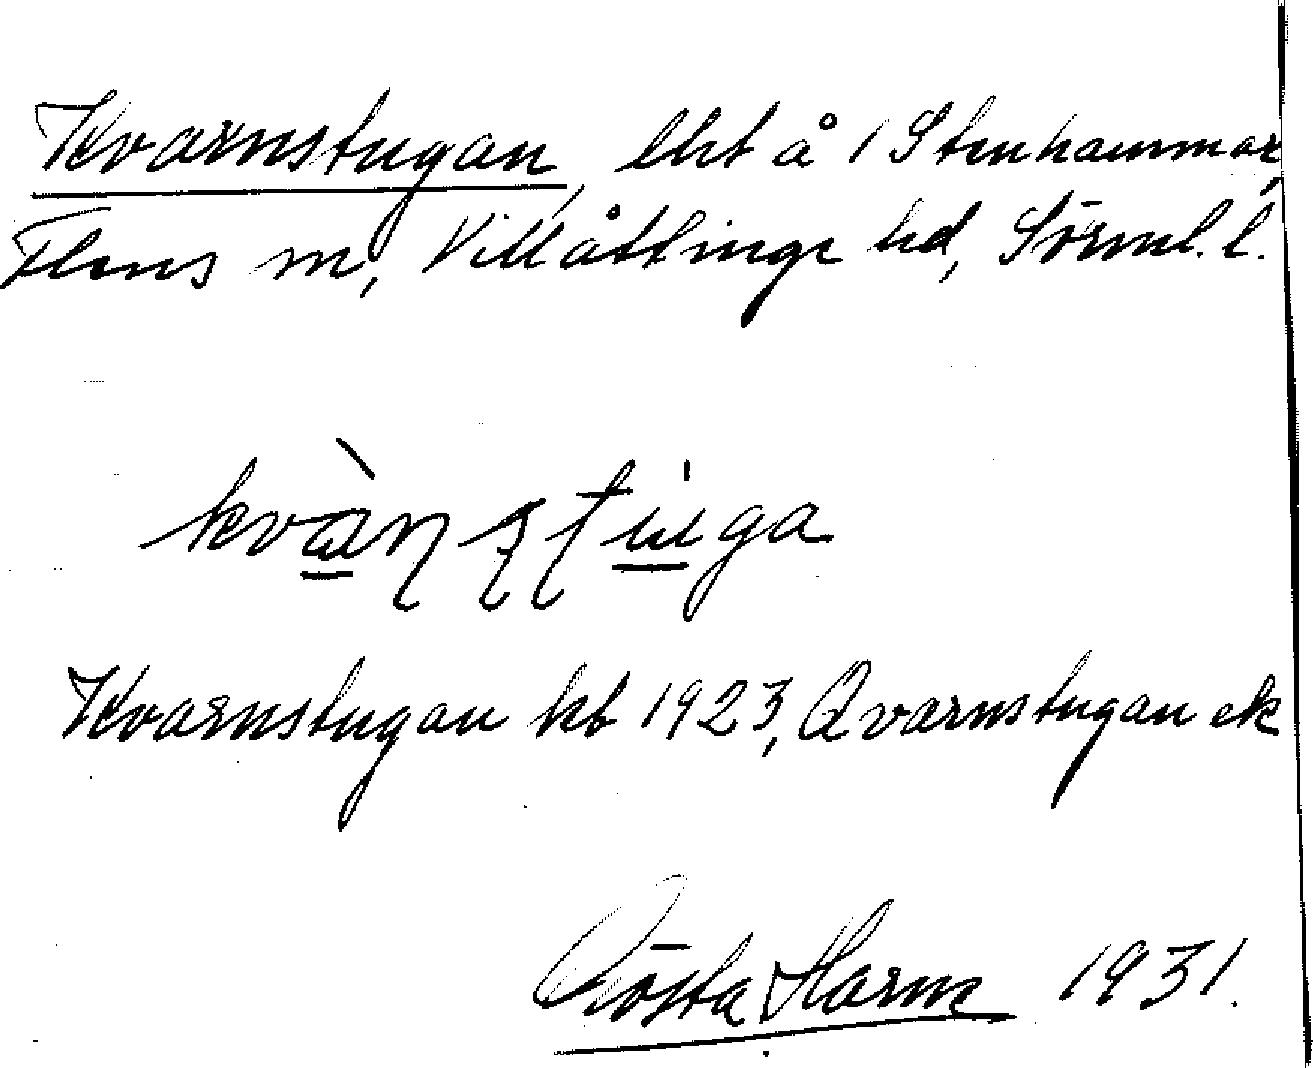 Kvarnstugan, lht å 1 Stenhammar,
Flens sn, Villåttinge hd, Sörml. l.
kvàn̩ʂtuga
Kvarnstugan kb 1923, Qvarnstugan ek
Gösta Harm 1931.